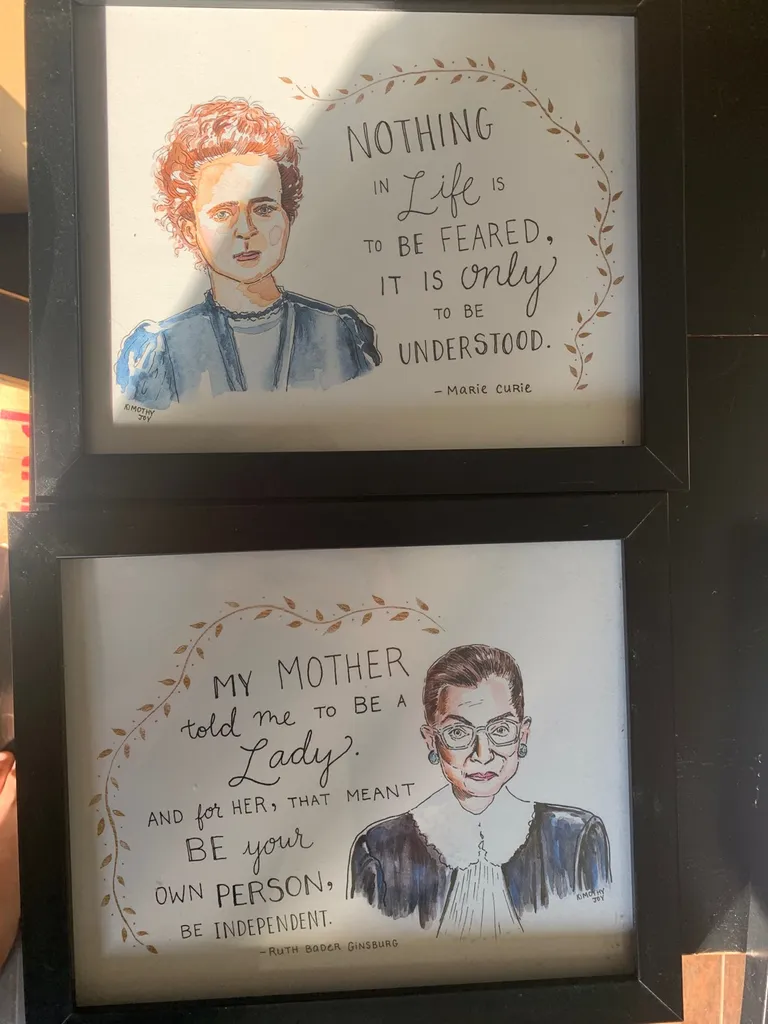 NOTHING
IN Life IS
TO BE FEARED,
IT IS only
TO BE
UNDERSTOOD.
- MARIE CURIE
KIMOTHY
JOY
MY MOTHER
told me TO BE A
Lady.
AND for HER, THAT MEANT
BE your
OWN PERSON,
BE INDEPENDENT.
- RUTH BADER GINSBURG
KIMOTHY
JOY